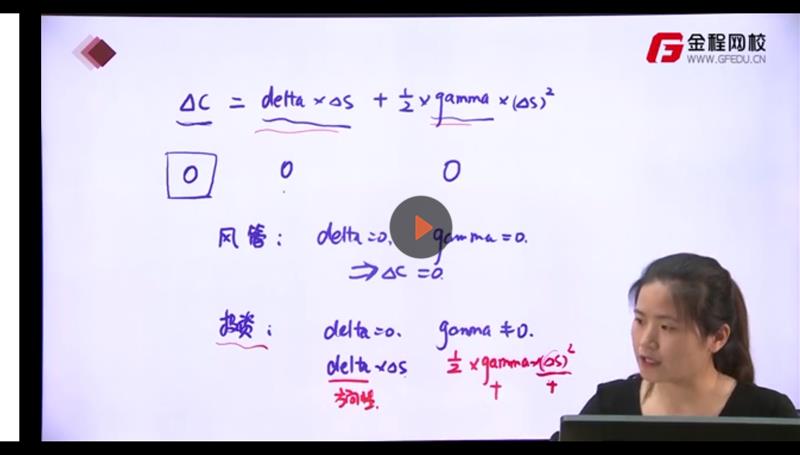 金程网校
WWW.GFEDU.CN
ΔC = delta × ΔS + 1/2 × gamma × (ΔS)²
0 0 0
风管: delta=0. gamma=0.
⇒ΔC=0.
投资: delta=0. gamma≠0.
delta×ΔS 1/2×gamma×(ΔS)²
方向性. + +